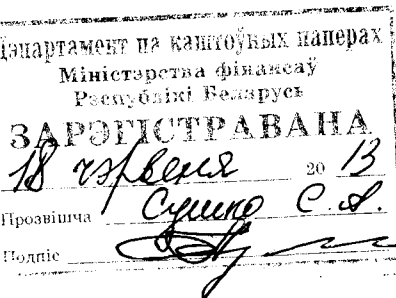 Дэпартамент па каштоўных паперах
Міністэрства фінансаў
Рэспублікі Беларусь
ЗАРЭГІСТРАВАНА
18 чэрвеня 2013
Прозвішча Сушко С.А.
Подпіс